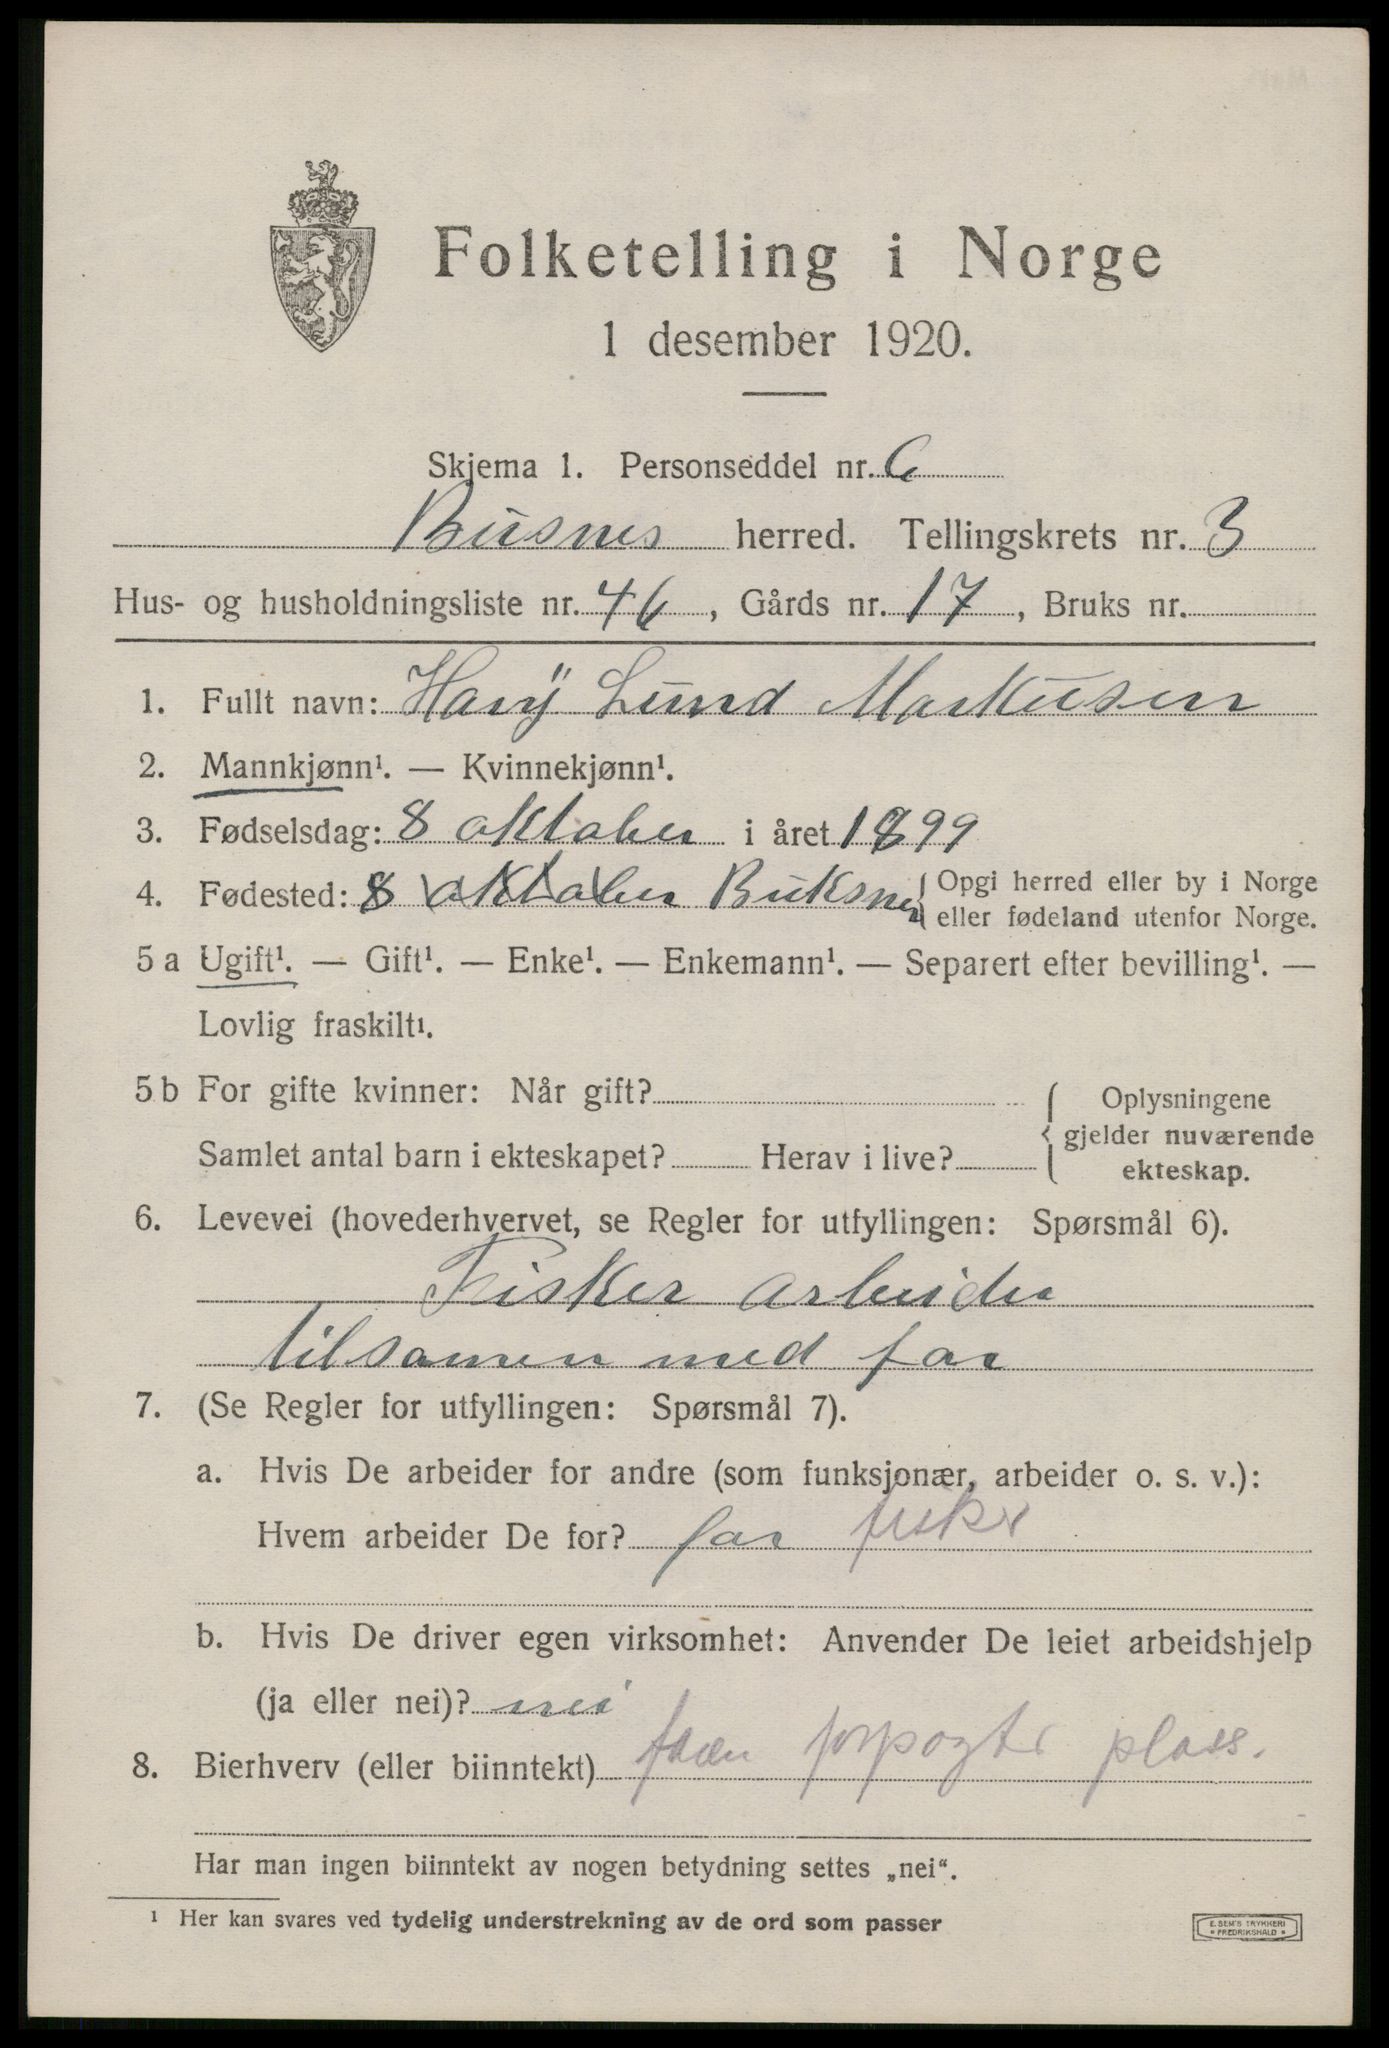 Folketelling i Norge
1 desember 1920.
Skjema 1. Personseddel nr. 6
Busnes herred. Tellingskrets nr. 3
Hus- og husholdningsliste nr. 46, Gårds nr. 17, Bruks nr.
1. Fullt navn: Harÿ Lund Markusen
2. Mannkjønn¹. — Kvinnekjønn¹.
3. Fødselsdag: 8 oktober i året 1899
4. Fødested: 8 oktober Buksnes { Opgi herred eller by i Norge
eller fødeland utenfor Norge.
5 a Ugift¹. — Gift¹. — Enke¹. — Enkemann¹. — Separert efter bevilling¹. —
Lovlig fraskilt¹.
5 b For gifte kvinner: Når gift?
Samlet antal barn i ekteskapet? Herav i live?
{ Oplysningene
gjelder nuværende
ekteskap.
6. Levevei (hovederhvervet, se Regler for utfyllingen: Spørsmål 6).
Fisker arbeider
tilsamen med far
7. (Se Regler for utfyllingen: Spørsmål 7).
a. Hvis De arbeider for andre (som funksjonær, arbeider o. s. v.):
Hvem arbeider De for? far fisker
b. Hvis De driver egen virksomhet: Anvender De leiet arbeidshjelp
(ja eller nei)? nei
8. Bierhverv (eller biinntekt) forpagter plass.
Har man ingen biinntekt av nogen betydning settes „nei“.
¹ Her kan svares ved tydelig understrekning av de ord som passer
E. SEM'S TRYKKERI
FREDRIKSHALD